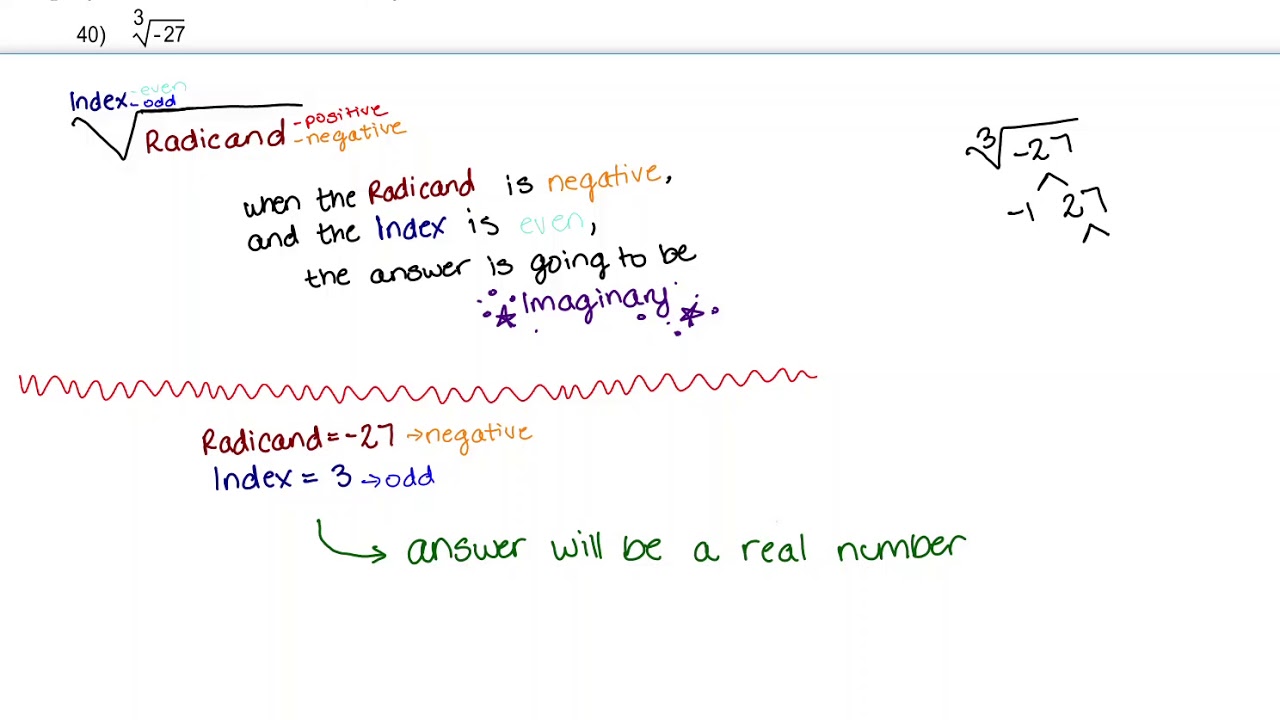 40) ∛-27
Index -even
-odd
√Radicand -positive
-negative
when the Radicand is negative,
and the Index is even,
the answer is going to be
Imaginary
Radicand = -27 → negative
Index = 3 → odd
answer will be a real number
∛-27
-1 27